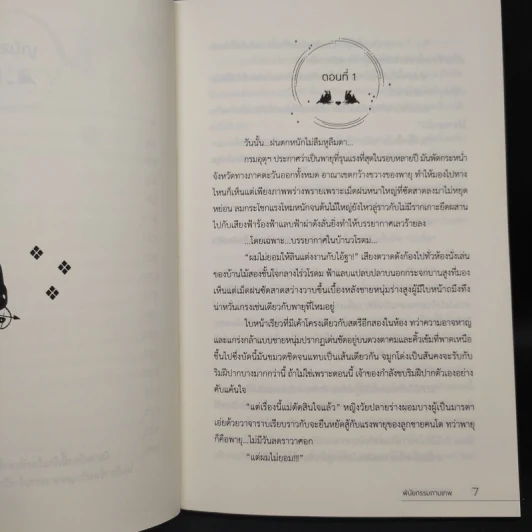 ตอนที่ 1
วันนั้น...ฝนตกหนักไม่ลืมหูลืมตา...
กรมอุตุฯ ประกาศว่าเป็นพายุที่รุนแรงที่สุดในรอบหลายปี มันพัดกระหน่ำ
จังหวัดทางภาคตะวันออกทั้งหมด อาณาเขตกว้างขวางของพายุ ทำให้มองไปทาง
ไหนก็เห็นแต่เพียงภาพพร่างพรายเพราะเม็ดฝนหนาใหญ่ที่ซัดสาดลงมาไม่หยุด
หย่อน ลมกระโชกแรงโหมหนักจนต้นไม้ใหญ่ยังไหวลู่ราวกับไม่มีรากเกาะยึดผสาน
ไปกับเสียงฟ้าร้องฟ้าแลบฟ้าผ่าดังลั่นยิ่งทำให้บรรยากาศเลวร้ายลง
...โดยเฉพาะ...บรรยากาศในบ้านวโรดม...
"ผมไม่ยอมให้ลินแต่งงานกับไอ้ฐา!" เสียงตวาดดังก้องไปทั่วห้องนั่งเล่น
ของบ้านไม้สองชั้นใจกลางไร่วโรดม ฟ้าแลบแปลบปลาบนอกกระจกบานสูงที่มอง
เห็นแต่เม็ดฝนซัดสาดสว่างวาบขึ้นเบื้องหลังชายหนุ่มร่างสูงผู้มีใบหน้าถมึงทึง
น่าหวั่นเกรงเช่นเดียวกับพายุที่โหมอยู่
ใบหน้าเรียวที่มีเค้าโครงเดียวกับสตรีอีกสองในห้อง ทว่าความอาจหาญ
และแกร่งกล้าแบบชายหนุ่มปรากฏเด่นชัดอยู่บนดวงตาคมและคิ้วเข้มที่พาดเหนือ
ขึ้นไปซึ่งบัดนี้มันขมวดชิดจนแทบเป็นเส้นเดียวกัน จมูกโด่งเป็นสันคงจะรับกับ
ริมฝีปากบางมากกว่านี้ ถ้าไม่ใช่เพราะตอนนี้ เจ้าของกำลังขบริมฝีปากตัวเองอย่าง
คับแค้นใจ
"แต่เรื่องนี้แม่ตัดสินใจแล้ว" หญิงวัยปลายร่างผอมบางผู้เป็นมารดา
เอ่ยด้วยวาจาราบเรียบราวกับจะยืนหยัดสู้กับแรงพายุของลูกชายคนโต ทว่าพายุ
ก็คือพายุ...ไม่มีวันลดราวาศอก
"แต่ผมไม่ยอม!!!"
พินัยกรรมกามเทพ 7